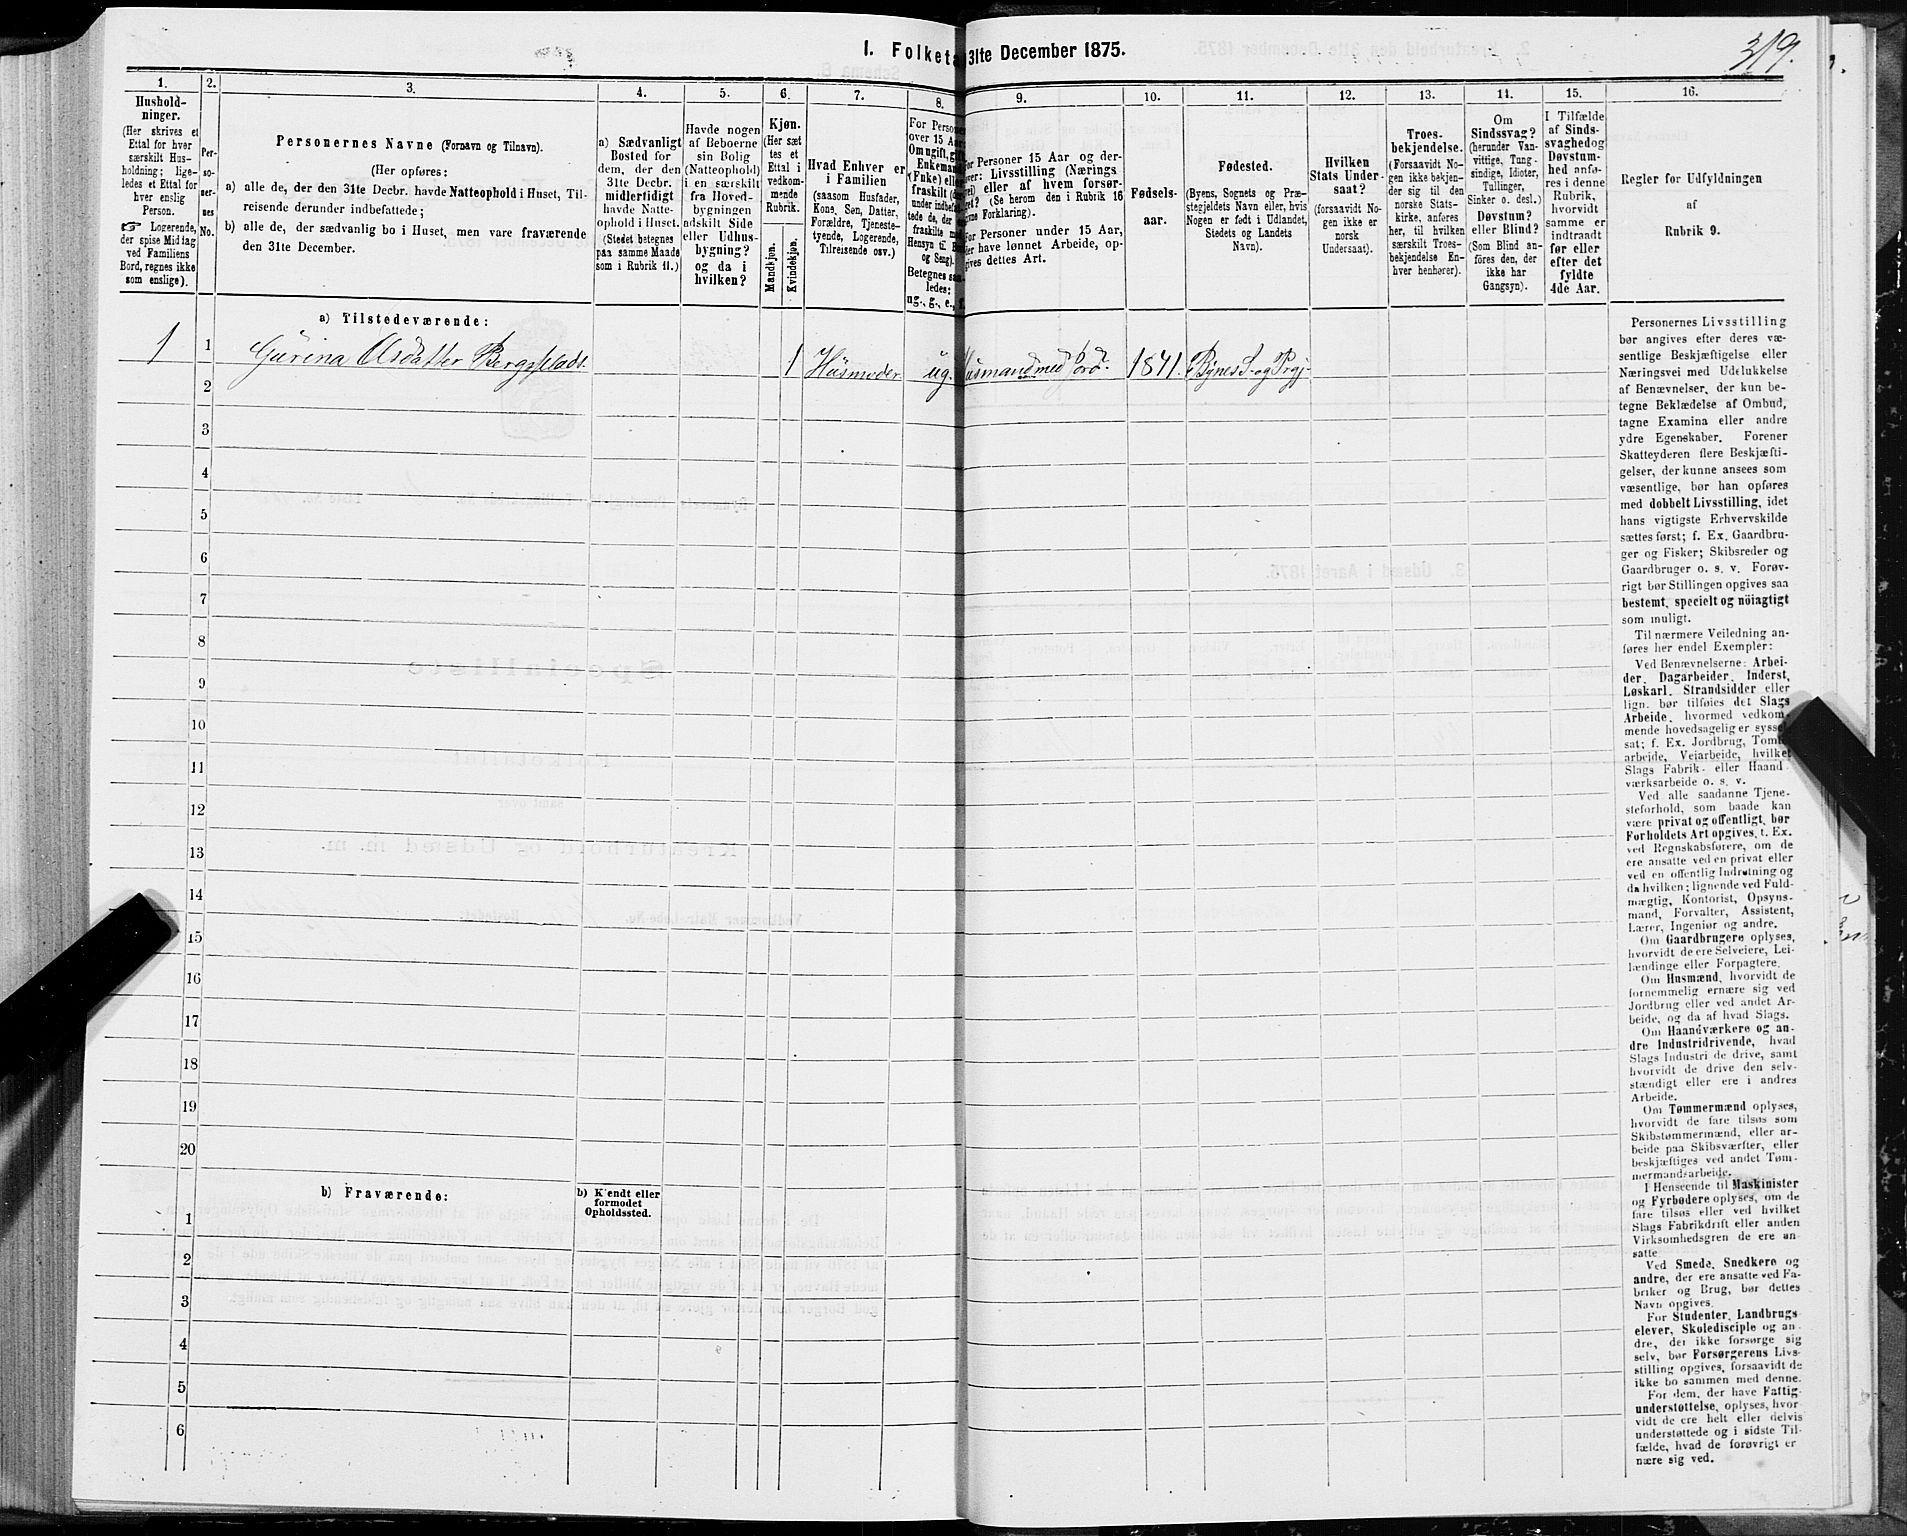 I. Folketa 31te December 1875.
319.
1.
2.
3.
4.
5.
6.
7.
8.
9.
10.
11.
12.
13.
14.
15.
16.
Hushold-
ninger.
(Her skrives et
Ettal for hver
særskilt Hus-
holdning; lige-
ledes et Ettal for
hver enslig
Person.
☞ Logerende,
der spise Middag
ved Familiens
Bord, regnes ikke
som enslige).
Per-
so-
ner-
nes
No.
Personernes Navne (Fornavn og Tilnavn).
(Her opføres:
a) alle de, der den 31te Decbr. havde Natteophold i Huset, Til-
reisende derunder indbefattede;
b) alle de, der sædvanlig bo i Huset, men vare fraværende
den 31te December.
a) Sædvanligt
Bosted for
dem, der den
31te Decbr.
midlertidigt
havde Natte-
ophold i Huset.
(Stedet betegnes
paa samme Maade
som i Rubrik 11.)
Havde nogen
af Beboerne
sin Bolig
(Natteophold)
i en særskilt
fra Hoved-
bygningen
adskilt Side
eller Udhus-
bygning?
og da i
hvilken?
Kjøn.
(Her sæt-
tes et
Ettal i
vedkom-
mende
Rubrik.
Mandkjøn.
Kvindekjøn.
Hvad Enhver er
i Familien
(saasom Husfader,
Kone, Søn, Datter,
Forældre, Tjeneste-
tyende, Logerende,
Tilreisende osv.)
For Persone
over 15 Aar
Om ugift, gift,
Enkemand
(Enke) eller
fraskilt (der-
under indbefat-
tede de, der
fraskilte med
Hensyn til B
og Seng).
Betegnes saa-
ledes:
ug., g., e., f.
For Personer 15 Aar og der-
over: Livsstilling (Nærings
vei) eller af hvem forsør-
get? (Se herom den i Rubrik 16
givne Forklaring).
For Personer under 15 Aar,
der have lønnet Arbeide, op-
gives dettes Art.
Fødsels-
aar.
Fødested.
(Byens, Sognets og Præ-
stegjeldets Navn eller, hvis
Nogen er født i Udlandet,
Stedets og Landets
Navn).
Hvilken
Stats Under-
saat?
(forsaavidt No-
gen ikke er
norsk
Undersaat).
Troes-
bekjendelse.
(Forsaavidt No-
gen ikke bekjen-
der sig til den
norske Stats-
kirke, anføres
her, til hvilken
særskilt Troes-
bekjendelse En-
hver henhører).
Om
Sindssvag?
(herunder Van-
vittige, Tung-
sindige, Idioter,
Tullinger,
Sinker o. desl.)
Døvstum?
eller Blind?
(Som Blind an-
føres den, der
ikke har
Gangsyn).
I Tilfælde
af Sinds-
svaghed og
Døvstum-
hed anfø-
res i denne
Rubrik,
hvorvidt
samme er
indtraadt
før eller
efter det
fyldte
4de Aar.
Regler for Udfyldningen
af
Rubrik 9.
a) Tilstedeværende:
1 1 Gurina Olsdatter Bergsplads. 1 Husmoder ug. Husmand med Jord. 1841. Bynes S. og Prgj.
2
3
4
5
6
7
8
9
10
11
12
13
14
15
16
17
18
19
20
b) Fraværende:
b) Kjendt eller
formodet
Opholdssted.
1
2
3
4
5
6
Personernes Livsstilling
bør angives efter deres væ-
sentlige Beskjæftigelse eller
Næringsvei med Udelukkelse
af Benævnelser, der kun be-
tegne Beklædelse af Ombud,
tagne Examina eller andre
ydre Egenskaber. Forener
Skatteyderen flere Beskjæfti-
gelser, der kunne ansees som
væsentlige, bør han opføres
med dobbelt Livsstilling, idet
hans vigtigste Erhvervskilde
sættes først; f. Ex. Gaardbru-
ger og Fisker; Skibsreder og
Gaardbruger o. s. v. Forøv-
rigt bør Stillingen opgives saa
bestemt, specielt og nöiagtigt
som muligt.
Til nærmere Veiledning an-
føres her endel Exempler:
Ved Benævnelserne: Arbei-
der, Dagarbeider, Inderst,
Løskarl, Strandsidder eller
lign. bør tilføies det Slags
Arbeide, hvormed vedkom-
mende hovedsagelig er syssel-
sat; f. Ex. Jordbrug, Tomt-
arbeide, Veiarbeide, hvilket
Slags Fabrik- eller Haand-
værksarbeide o. s. v.
Ved alle saadanne Tjene-
steforhold, som baade kan
være privat og offentligt, bør
Forholdets Art opgives, t. Ex.
ved Regnskabsførere, om de
ere ansatte ved en privat eller
ved en offentlig Indretning og
da hvilken; lignende ved Fuld-
mægtig, Kontorist, Opsyns-
mand, Forvalter, Assistent,
Lærer, Ingeniør og andre.
Om Gaardbrugere oplyses,
hvorvidt de ere Selveiere, Lei-
lændinge eller Forpagtere.
Om Husmænd, hvorvidt de
fornemmelig ernære sig ved
Jordbrug eller ved andet Ar-
beide, og da af hvad Slags.
Om Haandværkere og an-
dre Industridrivende, hvad
Slags Industri de drive, samt
hvorvidt de drive den selv-
stændigt eller ere i andres
Arbeide.
Om Tømmermænd oplyses,
hvorvidt de fare tilsøs som
Skibstømmermænd, eller ar-
beide paa Skibsværfter, eller
beskjæftiges ved andet Tøm-
mermandsarbeide.
I Henseende til Maskinister
og Fyrbødere oplyses, om de
fare tilsøs eller ved hvilket
Slags Fabrikdrift eller anden
Virksomhedsgren de ere an-
satte.
Ved Smede, Snedkere og
andre, der ere ansatte ved Fa-
briker og Brug, bør dettes
Navn opgives.
For Studenter, Landbrugs-
elever, Skoledisciple og an-
dre, der ikke forsørge sig
selv, bør Forsørgerens Livs-
stilling opgives, forsaavidt de
ikke bo sammen med denne.
For dem, der have Fattig-
understøttelse, oplyses, hvor-
vidt de ere helt eller delvis
understøttede og i sidste Til-
fælde, hvad de forøvrigt er-
nære sig ved.